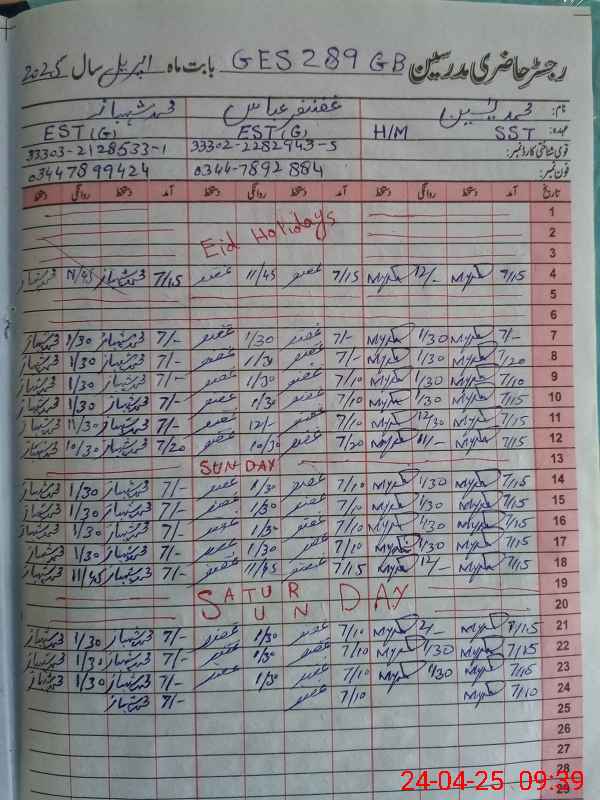 رجسٹر حاضری مدرسین GES 289 GB بابت ماہ اپریل سال 2025
نام: محمد یٰسین غضنفر عباس محمد شہباز
عہدہ: SST H/M EST (G) EST (G)
قومی شناختی کارڈ نمبر: 33302-2282943-5 33303-2128533-1
فون نمبر: 0344-7892884 03447899424
تاریخ آمد دستخط روانگی دستخط آمد دستخط روانگی دستخط آمد دستخط روانگی دستخط
1
2 Eid Holidays
3
4 7/15 12/- 7/15 غضنفر 11/45 غضنفر 7/15 محمد شہباز 11/45 محمد شہباز
5
6
7 7/- 1/30 7/- غضنفر 1/30 غضنفر 7/- محمد شہباز 1/30 محمد شہباز
8 7/20 1/30 7/- غضنفر 1/30 غضنفر 7/- محمد شہباز 1/30 محمد شہباز
9 7/10 1/30 7/10 غضنفر 1/30 غضنفر 7/- محمد شہباز 1/30 محمد شہباز
10 7/15 1/30 7/10 غضنفر 1/30 غضنفر 7/- محمد شہباز 1/30 محمد شہباز
11 7/15 12/30 7/10 غضنفر 12/- غضنفر 7/- محمد شہباز 11/30 محمد شہباز
12 7/15 11/- 7/20 غضنفر 10/30 غضنفر 7/20 محمد شہباز 10/30 محمد شہباز
13 SUNDAY
14 7/15 1/30 7/10 غضنفر 1/30 غضنفر 7/- محمد شہباز 1/30 محمد شہباز
15 7/15 1/30 7/10 غضنفر 1/30 غضنفر 7/- محمد شہباز 1/30 محمد شہباز
16 7/15 1/30 7/10 غضنفر 1/30 غضنفر 7/- محمد شہباز 1/30 محمد شہباز
17 7/15 1/30 7/10 غضنفر 1/30 غضنفر 7/- محمد شہباز 1/30 محمد شہباز
18 7/15 12/- 7/15 غضنفر 11/45 غضنفر 7/- محمد شہباز 11/45 محمد شہباز
19 SATUR DAY
20 SUN
21 7/15 7/10 غضنفر 1/30 غضنفر 7/- محمد شہباز 1/30 محمد شہباز
22 7/15 1/30 7/10 غضنفر 1/30 غضنفر 7/- محمد شہباز 1/30 محمد شہباز
23 7/15 1/30 7/10 غضنفر 1/30 غضنفر 7/- محمد شہباز 1/30 محمد شہباز
24 7/10 7/10 غضنفر 7/- محمد شہباز
25
26
27
28
29
24-04-25 09:39